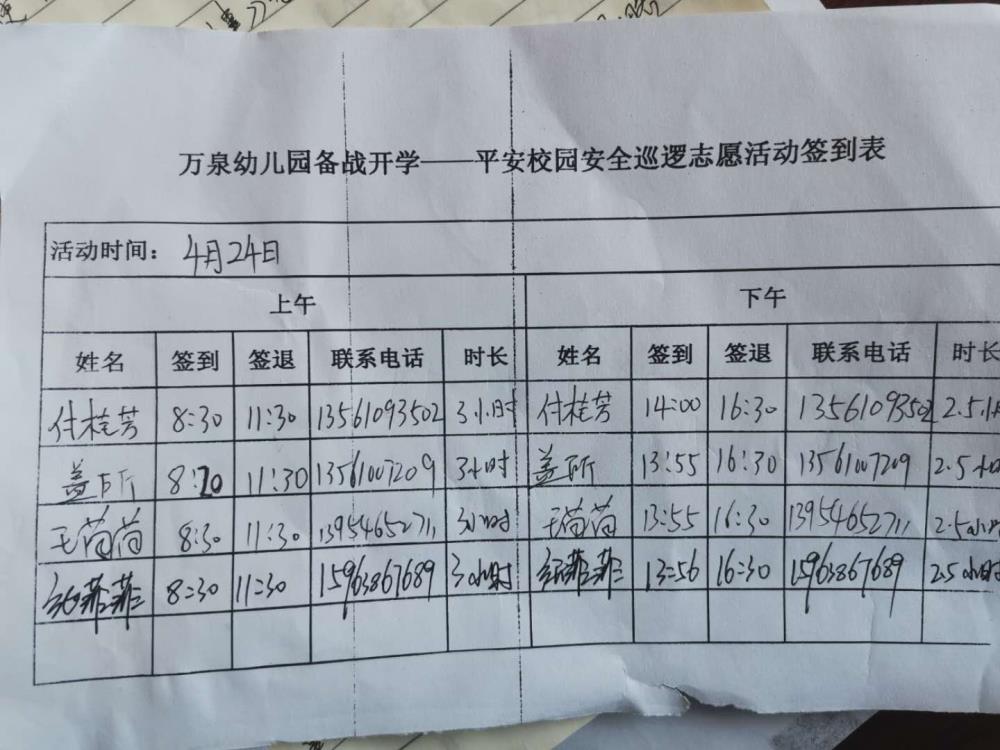 万泉幼儿园备战开学——平安校园安全巡逻志愿活动签到表
活动时间： 4月24日
上午 下午
姓名 签到 签退 联系电话 时长 姓名 签到 签退 联系电话 时长
付桂芳 8:30 11:30 13561093502 3小时 付桂芳 14:00 16:30 13561093502 2.5小
盖 8:20 11:30 13561007209 3小时 盖 13:55 16:30 13561007209 2.5小时
王茵茵 8:30 11:30 13954652711 3小时 王茵茵 13:55 16:30 13954652711 2.5小时
菲菲 8:30 11:30 15963867689 3小时 菲菲 13:56 16:30 15963867689 2.5小时